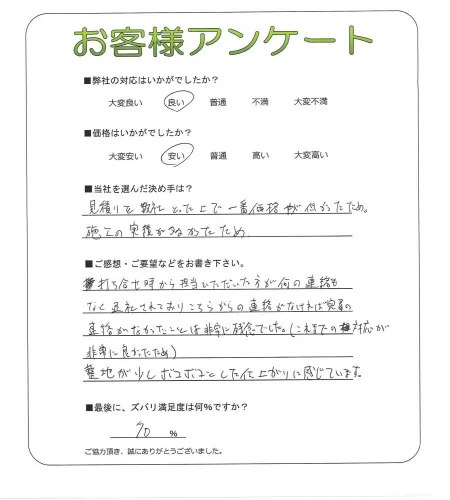 お客様アンケート
■弊社の対応はいかがでしたか？
大変良い 良い 普通 不満 大変不満
■価格はいかがでしたか？
大変安い 安い 普通 高い 大変高い
■当社を選んだ決め手は？
見積りを数社とった上で一番価格が低かったため。
施工の実績が多かったため
■ご感想・ご要望などをお書き下さい。
打ち合せ時から担当いただいた方が何の連絡も
なく退社されておりこちらからの連絡がなければ変更の
連絡がなかったことは非常に残念でした。(これまでの対応が
非常に良かったため)
整地が少しボコボコとした仕上がりに感じています。
■最後に、ズバリ満足度は何%ですか？
70 %
ご協力頂き、誠にありがとうございました。